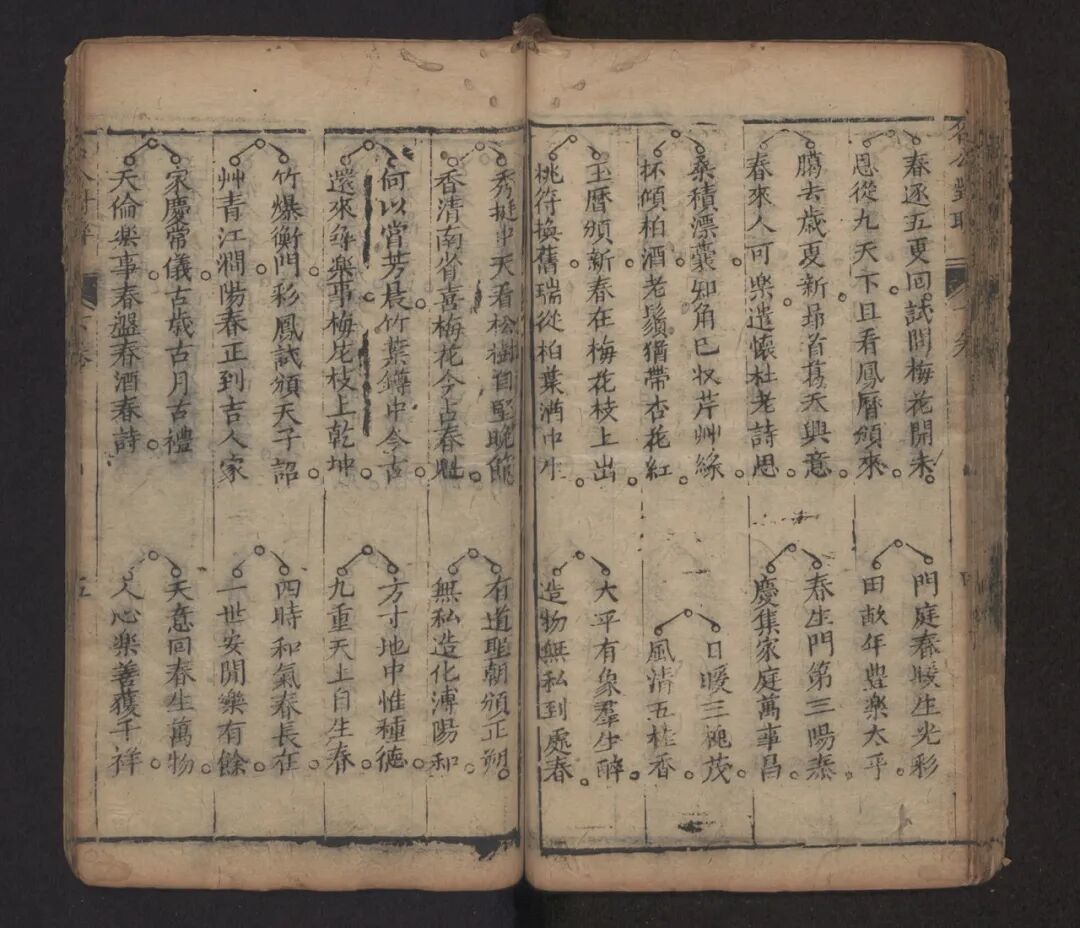 春逐五更回試問梅花開未
恩從九天下且看鳳曆頒來
臈去歳更新昻首舊天興意
春來人可樂遣懷杜老詩思
桑積漂囊知角已収芹艸緑
杯傾柏酒老鬚猶帶杏花紅
玉曆頒新春在梅花枝上出
桃符換舊瑞從柏葉満中生
門庭春暖生光彩
田畝年豊樂太平
春生門第三陽泰
慶集家庭萬事昌
日暖三槐茂
風清五桂香
大平有象羣生醉
造物無私到處春
秀挺中天看松樹自堅晩節
香清南省喜梅花今占春魁
何以當芳晨竹葉罇中今古
還來尋樂事梅花枝上乾坤
竹爆衡門彩鳳試頒天子詔
艸青江澗陽春正到吉人家
家慶常儀古歳古月古禮
天倫樂事春盤春酒春詩
有道聖朝頒正朔
無私造化溥陽和
方寸地中惟種德
九重天上自生春
四時和氣春長在
一世安閒樂有餘
天意回春生萬物
人心樂善獲千祥
五